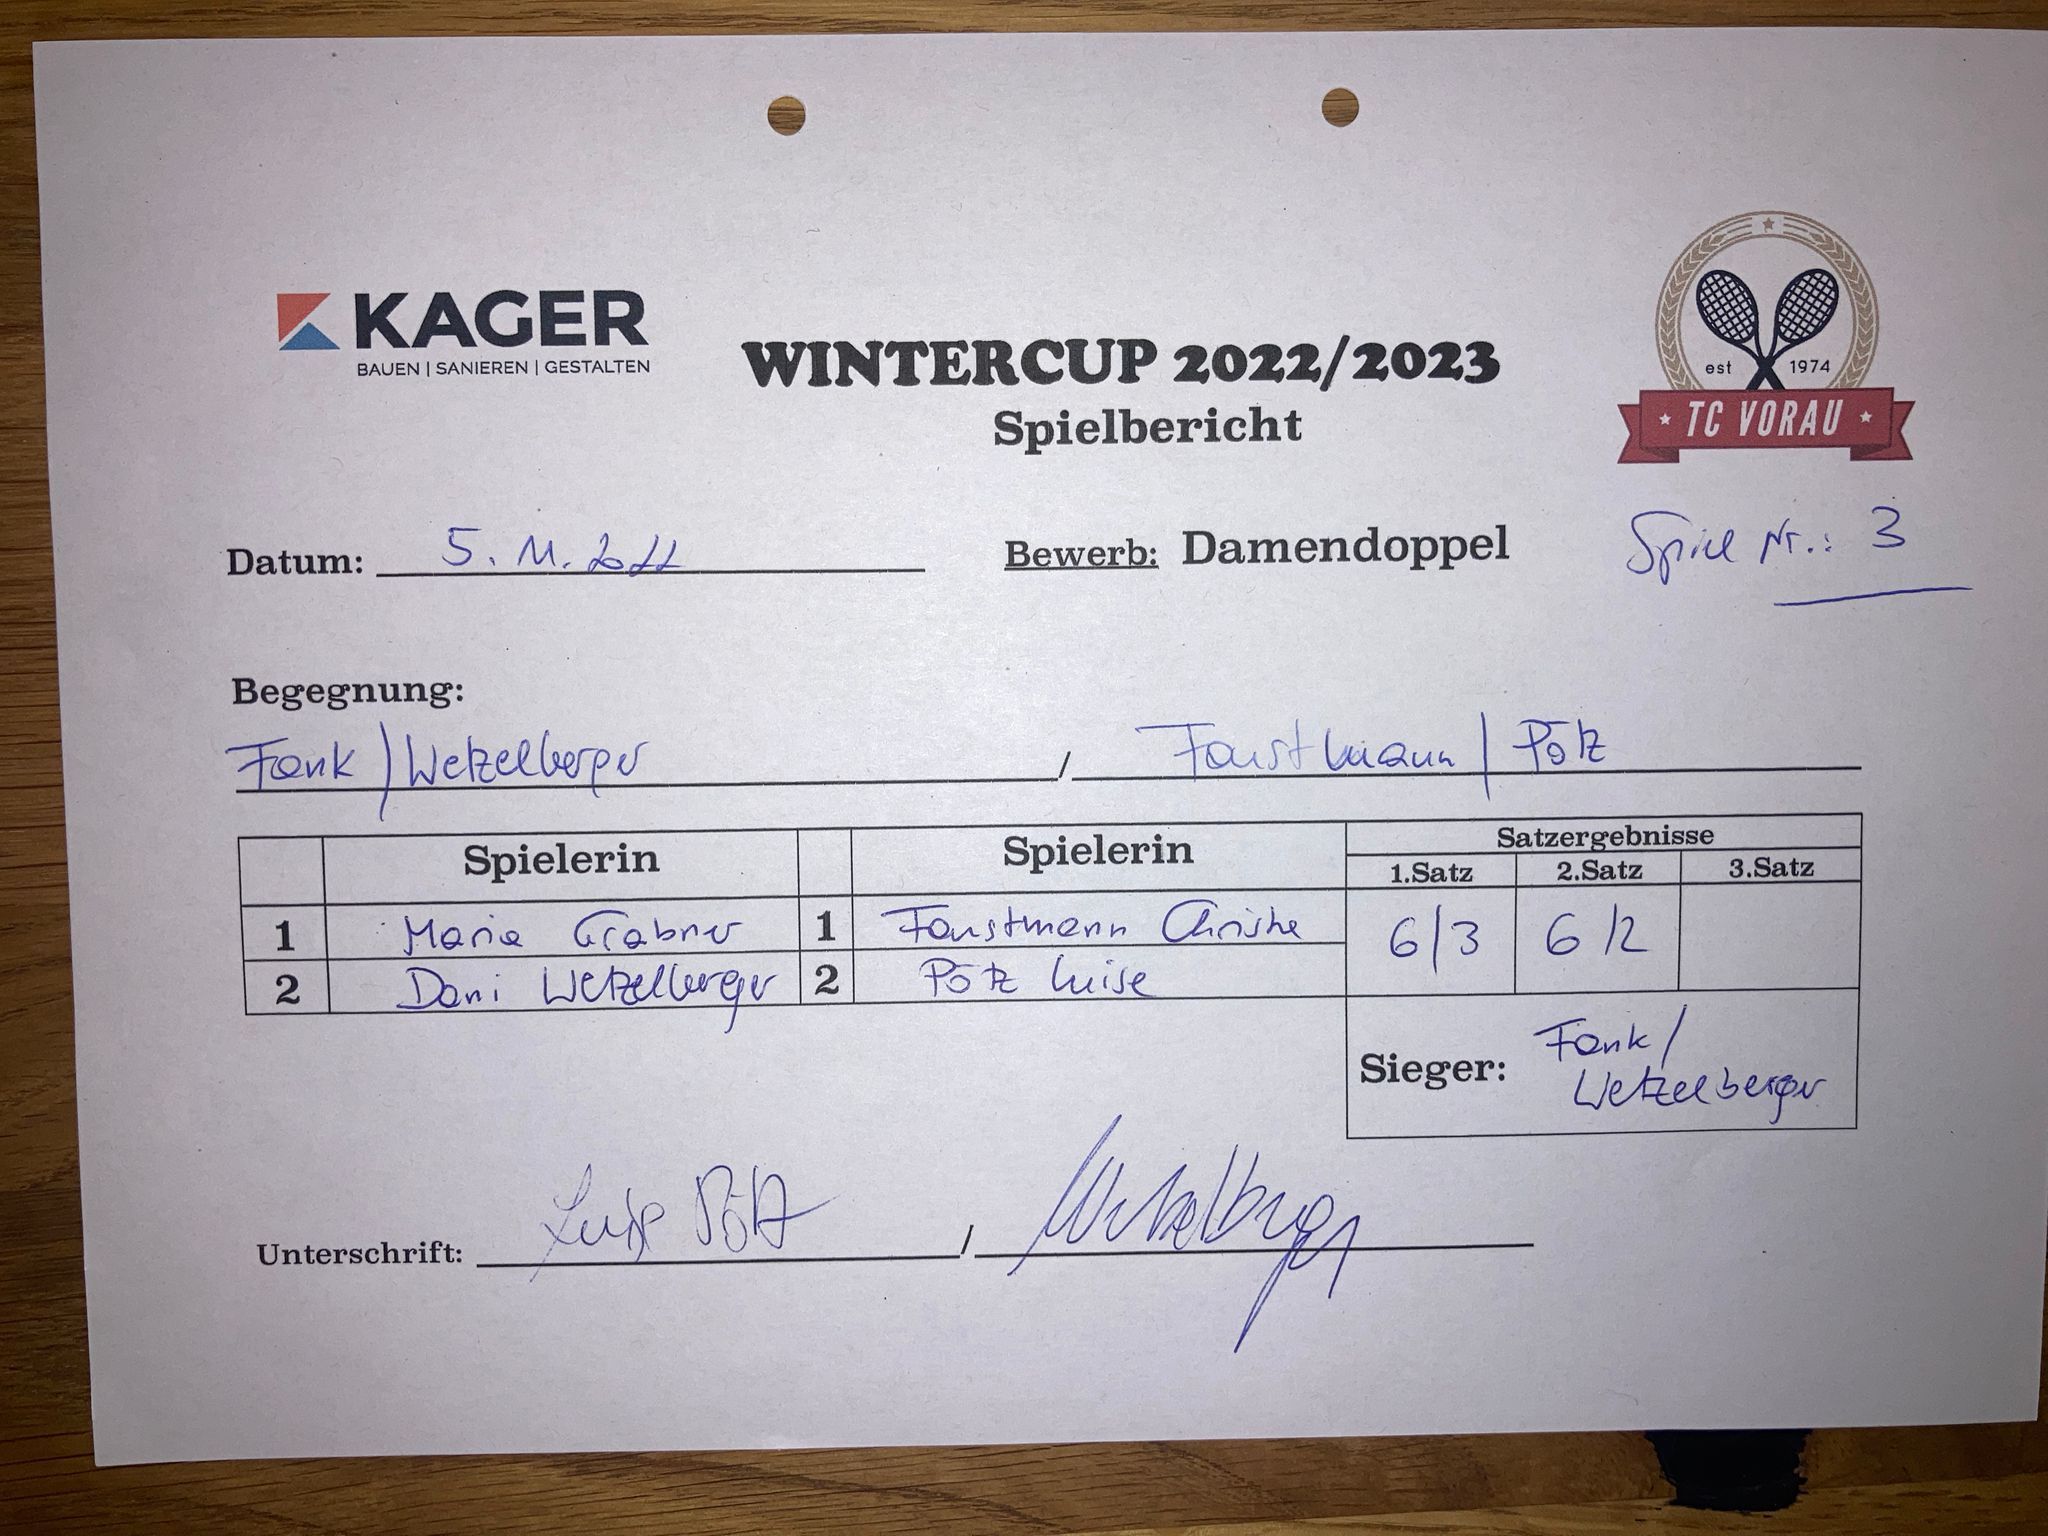 KAGER
BAUEN | SANIEREN | GESTALTEN
WINTERCUP 2022/2023
Spielbericht
est 1974
TC VORAU
Datum: 5. 11. 2022
Bewerb: Damendoppel
Spiel Nr.: 3
Begegnung:
Fank / Wetzelberger / Faustmann / Pötz
Spielerin Spielerin Satzergebnisse
1.Satz 2.Satz 3.Satz
1 Maria Grabner 1 Faustmann Christa 6/3 6/2
2 Dani Wetzelberger 2 Pötz Luise
Sieger: Fank /
Wetzelberger
Unterschrift: Luise Pötz / Wetzelberger